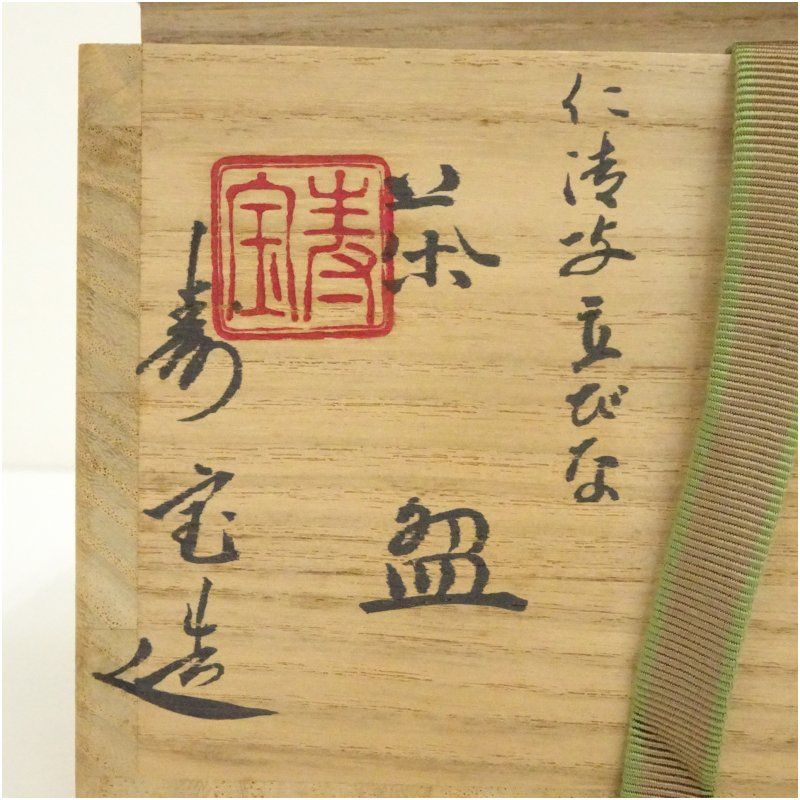 仁清写立びな
茶盌
寿宝造
寿宝